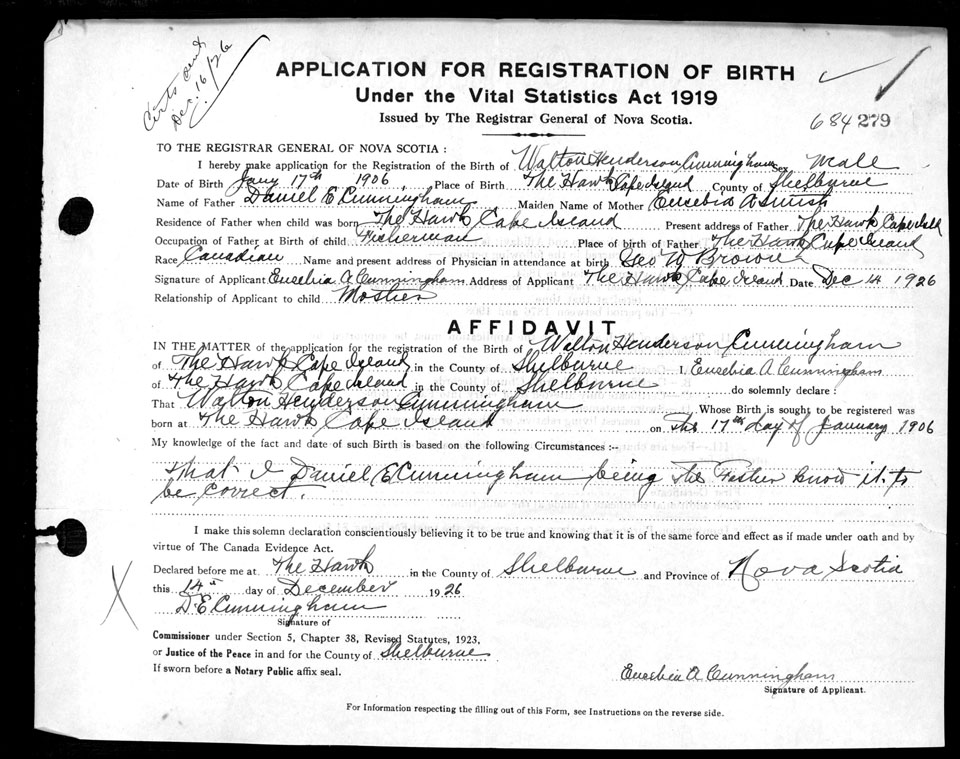 Certs sent
Dec. 16/26
APPLICATION FOR REGISTRATION OF BIRTH
Under the Vital Statistics Act 1919
Issued by The Registrar General of Nova Scotia.
684 279
TO THE REGISTRAR GENERAL OF NOVA SCOTIA :
I hereby make application for the Registration of the Birth of Walton Henderson Cunningham Sex Male
Date of Birth Jany 17th 1906, Place of Birth The Hawk Cape Island County of Shelburne
Name of Father Daniel E Cunningham Maiden Name of Mother Eusebia A Smith
Residence of Father when child was born The Hawk Cape Island Present address of Father The Hawk Cape Isld
Occupation of Father at Birth of child Fisherman Place of birth of Father The Hawk Cape Island
Race Canadian Name and present address of Physician in attendance at birth Geo W Brown
Signature of Applicant Eusebia A Cunningham Address of Applicant The Hawk Cape Island Date Dec 14 1926
Relationship of Applicant to child Mother
AFFIDAVIT
IN THE MATTER of the application for the registration of the Birth of Walton Henderson Cunningham
of The Hawk Cape Island in the County of Shelburne I, Eusebia A Cunningham
of The Hawk Cape Island in the County of Shelburne do solemnly declare :
That Walton Henderson Cunningham Whose Birth is sought to be registered was
born at The Hawk Cape Island on the 17th day of January 1906
My knowledge of the fact and date of such Birth is based on the following Circumstances :-
that I Daniel E Cunningham being the Father know it to
be correct.
I make this solemn declaration conscientiously believing it to be true and knowing that it is of the same force and effect as if made under oath and by
virtue of The Canada Evidence Act.
Declared before me at The Hawk in the County of Shelburne and Province of Nova Scotia
this 14th day of December 1926
D. E Cunningham
Signature of
Commissioner under Section 5, Chapter 38, Revised Statutes, 1923,
or Justice of the Peace in and for the County of Shelburne
If sworn before a Notary Public affix seal.
Eusebia A Cunningham
Signature of Applicant.
For Information respecting the filling out of this Form, see Instructions on the reverse side.